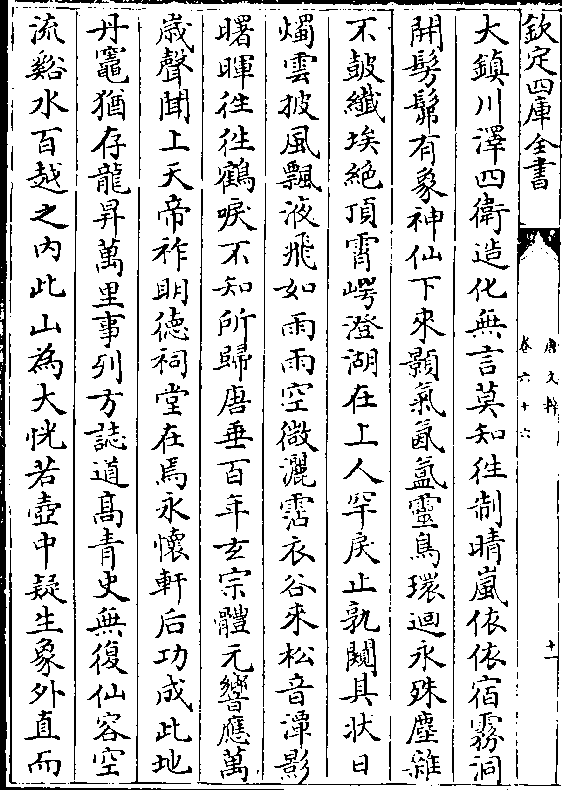 欽定四庫全書
唐文粹
卷六十六
十一
大鎮川澤四衛造化無言莫知徃制晴嵐依依宿霧洞
開髣髴有象神仙下來顥氣氤氳靈鳥環迴永殊塵雜
不鼓纎埃絶頂霄崿澄湖在上人罕戾止孰闚具狀日
燭雲披風飄液飛如雨雨空微灑霑衣谷來松音潭影
曙暉徃徃鶴唳不知所歸唐垂百年玄宗體元響應萬
歳聲聞上天帝祚明德祠堂在焉永懷軒后功成此地
丹竈猶存龍昇萬里事列方誌道髙青史無復仙容空
流谿水百越之内此山為大恍若壺中疑生象外直而